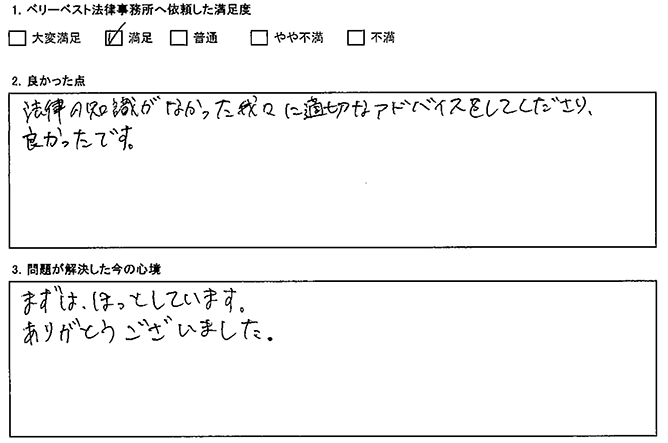 1. ベリーベスト法律事務所へ依頼した満足度
□ 大変満足 ☑ 満足 □ 普通 □ やや不満 □ 不満
2. 良かった点
法律の知識がなかった我々に適切なアドバイスをしてくださり、
良かったです。
3. 問題が解決した今の心境
まずは、ほっとしています。
ありがとうございました.